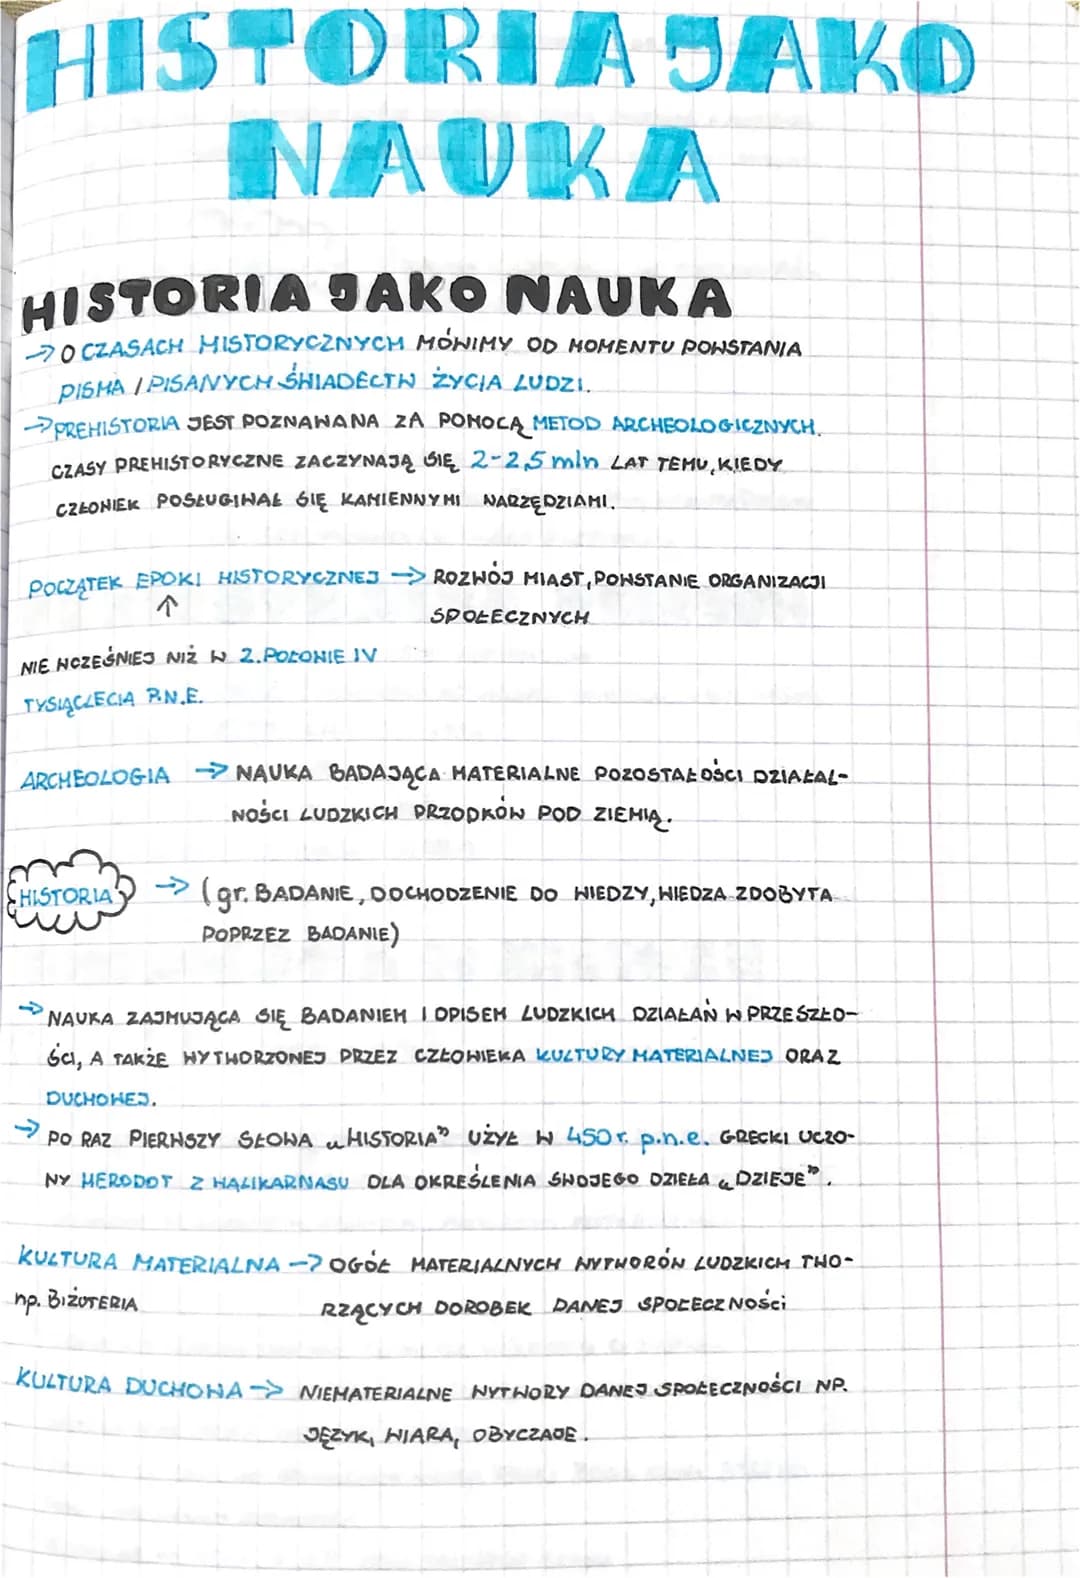 HISTORIA JAKO
NAUKA
HISTORIA JAKO NAUKA
→ O CZASACH HISTORYCZNYCH MÓWIMY OD MOMENTU POWSTANIA
PISMA / PISANYCH ŚWIADECTW ŻYCIA LUDZI.
→ PREHISTORIA JEST POZNAWANA ZA POMOCĄ METOD ARCHEOLOGICZNYCH.
CZASY PREHISTORYCZNE ZACZYNAJĄ SIĘ 2-2,5 mln LAT TEMU, KIEDY
CZŁOWIEK POSŁUGIWAŁ SIĘ KAMIENNYMI NARZĘDZIAMI.
POCZĄTEK EPOKI HISTORYCZNEJ → ROZWÓJ MIAST, POWSTANIE ORGANIZACJI
↑ SPOŁECZNYCH
NIE WCZEŚNIEJ NIŻ W 2. POŁOWIE IV
TYSIĄCLECIA P.N.E.
ARCHEOLOGIA → NAUKA BADAJĄCA MATERIALNE POZOSTAŁOŚCI DZIAŁAL-
NOŚCI LUDZKICH PRZODKÓW POD ZIEMIĄ.
HISTORIA → (gr. BADANIE, DOCHODZENIE DO WIEDZY, WIEDZA ZDOBYTA
POPRZEZ BADANIE)
→ NAUKA ZAJMUJĄCA SIĘ BADANIEM I OPISEM LUDZKICH DZIAŁAŃ W PRZESZŁO-
ŚCI, A TAKŻE WYTWORZONEJ PRZEZ CZŁOWIEKA KULTURY MATERIALNEJ ORAZ
DUCHOWEJ.
→ PO RAZ PIERWSZY SŁOWA „HISTORIA” UŻYŁ W 450 r. p.n.e. GRECKI UCZO-
NY HERODOT Z HALIKARNASU DLA OKREŚLENIA SWOJEGO DZIEŁA „DZIEJE”.
KULTURA MATERIALNA → OGÓŁ MATERIALNYCH WYTWORÓW LUDZKICH TWO-
np. BIŻUTERIA RZĄCYCH DOROBEK DANEJ SPOŁECZNOŚCI
KULTURA DUCHOWA → NIEMATERIALNE WYTWORY DANEJ SPOŁECZNOŚCI NP.
JĘZYK, WIARA, OBYCZAJE.